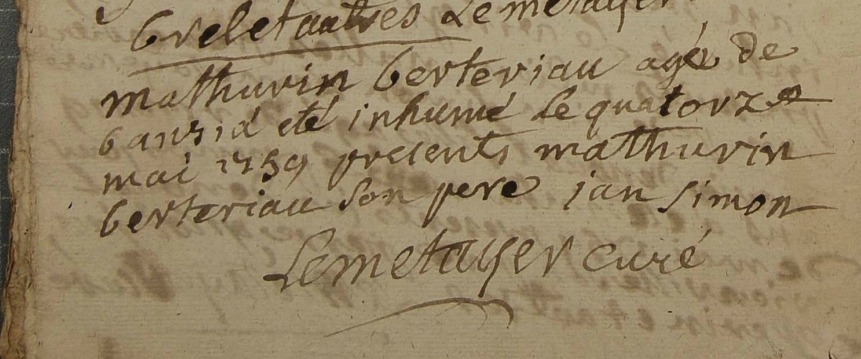 brelet autres Lemetayer
mathurin berteriau agé de
6 ans i a eté inhumé le quatorze
mai 1759 presents mathurin
berteriau son pere jan simon
Lemetayer curé